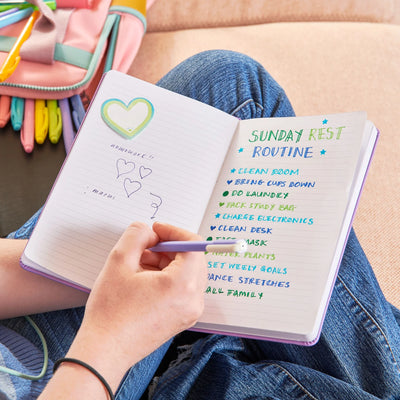 HOMEWORK !!
SUNDAY REST
ROUTINE
CLEAN ROOM
BRING CUPS DOWN
DO LAUNDRY
PACK STUDY BAG
CHARGE ELECTRONICS
CLEAN DESK
MASK
PLANTS
SET WEEKLY GOALS
DANCE STRETCHES
CALL FAMILY